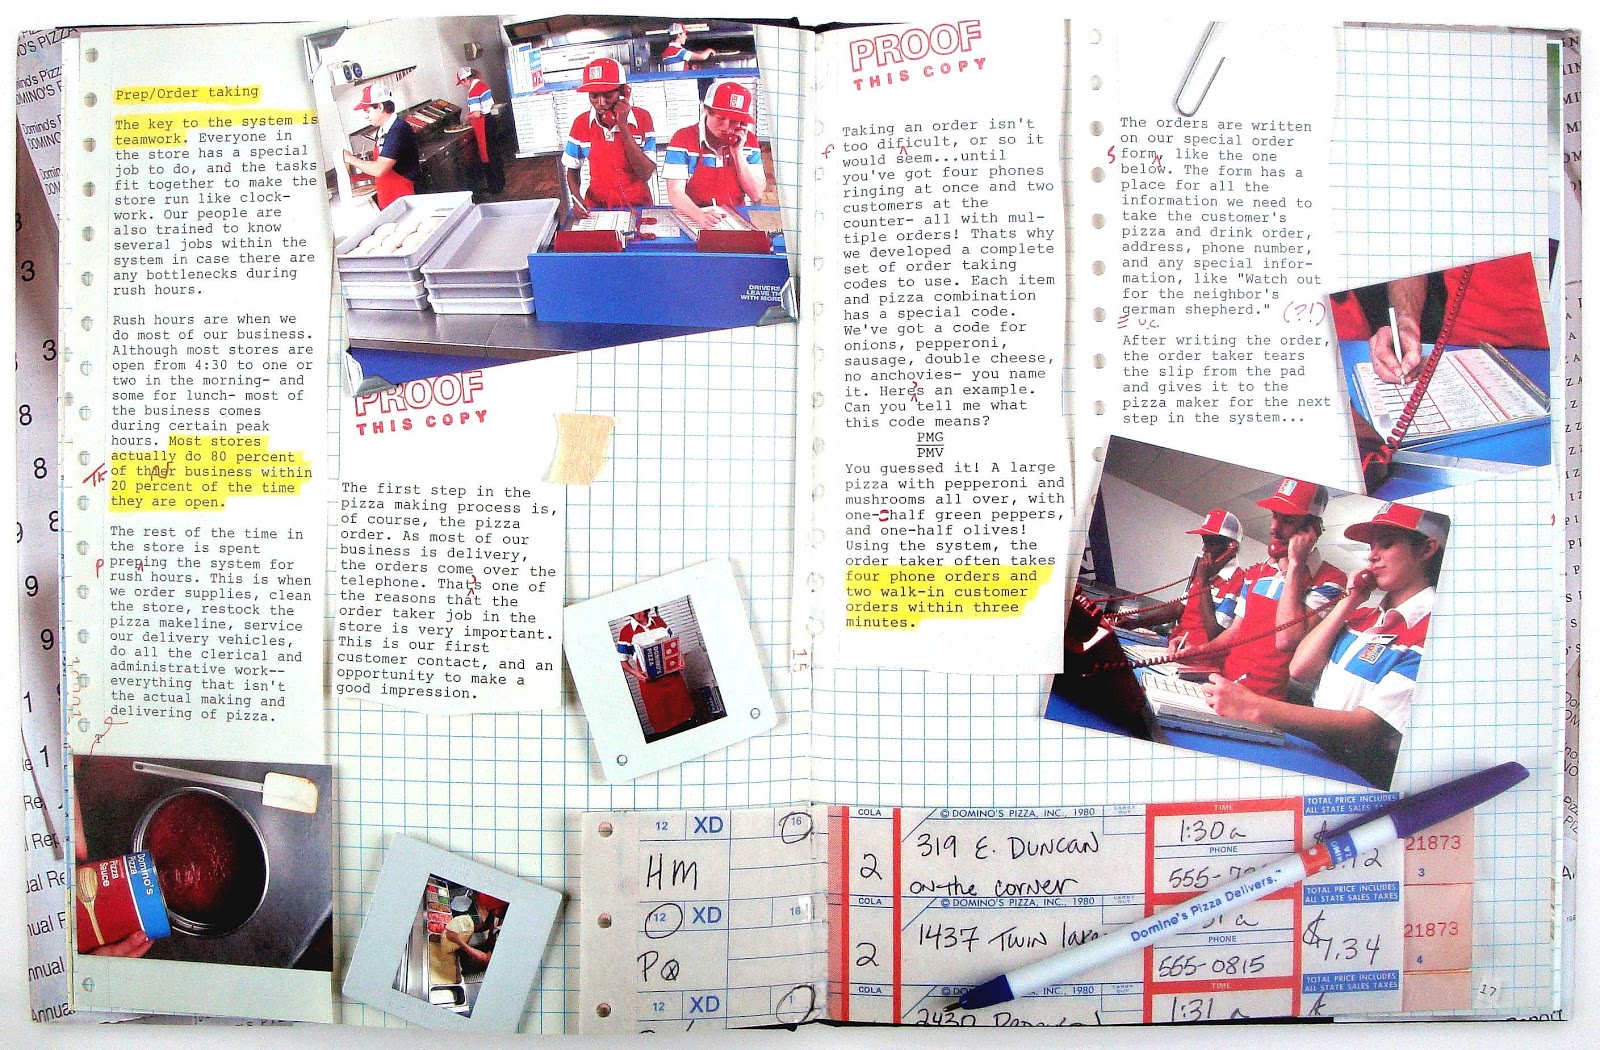 Prep/Order taking
The key to the system is
teamwork. Everyone in
the store has a special
job to do, and the tasks
fit together to make the
store run like clock-
work. Our people are
also trained to know
several jobs within the
system in case there are
any bottlenecks during
rush hours.
Rush hours are when we
do most of our business.
Although most stores are
open from 4:30 to one or
two in the morning- and
some for lunch- most of
the business comes
during certain peak
hours. Most stores
actually do 80 percent
of their business within
20 percent of the time
they are open.
The rest of the time in
the store is spent
preping the system for
p
rush hours. This is when
we order supplies, clean
the store, restock the
pizza makeline, service
our delivery vehicles,
do all the clerical and
administrative work--
everything that isn't
the actual making and
delivering of pizza.
DRIVERS
LEAVE TH
WITH MORE
PROOF
THIS COPY
The first step in the
pizza making process is,
of course, the pizza
order. As most of our
business is delivery,
the orders come over the
telephone. Thats one of
the reasons that the
order taker job in the
store is very important.
This is our first
customer contact, and an
opportunity to make a
good impression.
Domino's
Pizza
Pizza
Sauce
DOMINO'S
PIZZA
15
PROOF
THIS COPY
Taking an order isn't
too dificult, or so it
f
would seem...until
you've got four phones
ringing at once and two
customers at the
counter- all with mul-
tiple orders! Thats why
we developed a complete
set of order taking
codes to use. Each item
and pizza combination
has a special code.
We've got a code for
onions, pepperoni,
sausage, double cheese,
no anchovies- you name
it. Heres an example.
Can you tell me what
this code means?
PMG
PMV
You guessed it! A large
pizza with pepperoni and
mushrooms all over, with
one-half green peppers,
and one-half olives!
Using the system, the
order taker often takes
four phone orders and
two walk-in customer
orders within three
minutes.
The orders are written
on our special order
form, like the one
s
below. The form has a
place for all the
information we need to
take the customer's
pizza and drink order,
address, phone number,
and any special infor-
mation, like "Watch out
for the neighbor's
german shepherd." (?!)
u.c.
After writing the order,
the order taker tears
the slip from the pad
and gives it to the
pizza maker for the next
step in the system...
12 XD 16
HM
12 XD 16
12 XD
COLA © DOMINO'S PIZZA, INC., 1980 CARRY OUT TIME TOTAL PRICE INCLUDES ALL STATE SALES TAXES
2 319 E. DUNCAN 1:30a 21873
on the corner PHONE 3
555-
COLA © DOMINO'S PIZZA, INC., 1980 CARRY OUT TOTAL PRICE INCLUDES ALL STATE SALES TAXES
2 1437 TWIN lake $7.34 21873
PHONE 4
555-0815
COLA PIZZA, INC., 1980 CARRY OUT TIME TOTAL PRICE INCLUDES ALL STATE SALES TAXES
2430 1:31a
Domino's Pizza Delivers.™
17